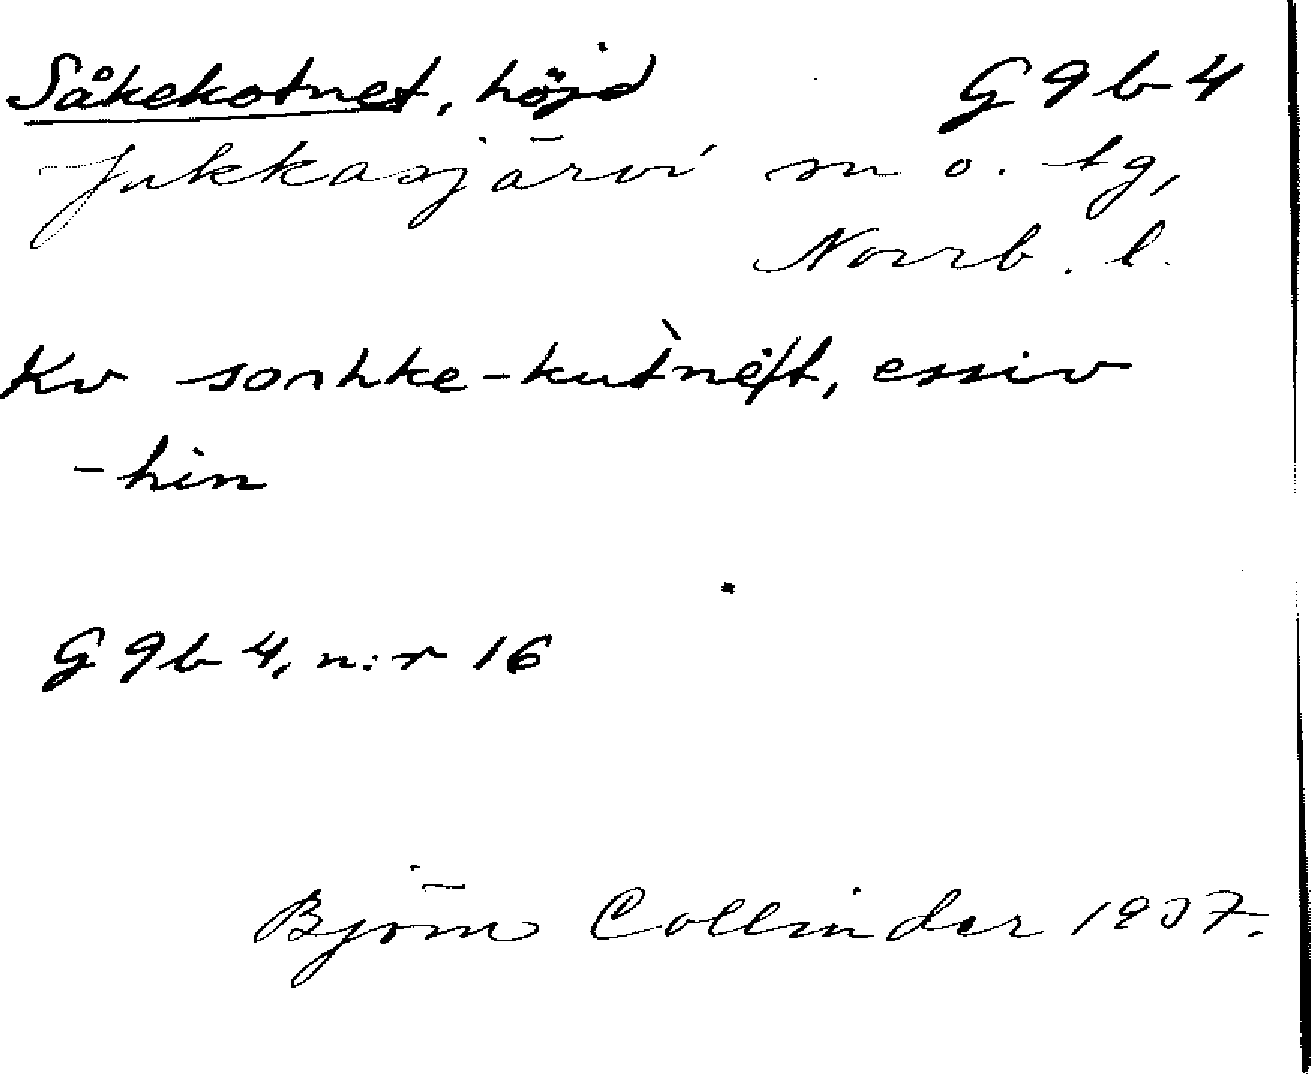 Såkekotnet, höjd G9b4
Jukkasjärvi sn o. tg,
Norrb. l.
Kv
essiv
-hin
G9b4, n:r 16
Björn Collinder 1937.